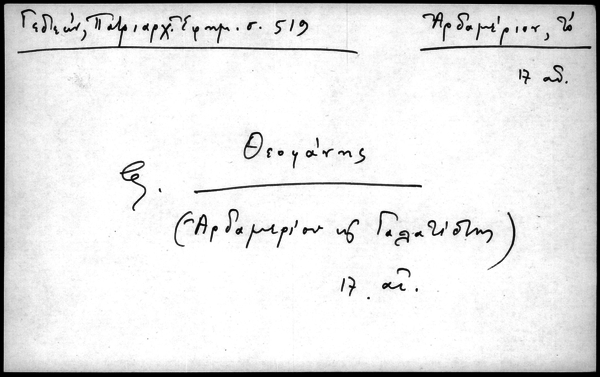 Γεδεών, Πατριαρχ. Εφημ. σ. 519
Ἀρδαμέριον, τό
17 αἰ.
Θεοφάνης
(Ἀρδαμερίου καὶ Γαλατίστης)
17 αἰ.